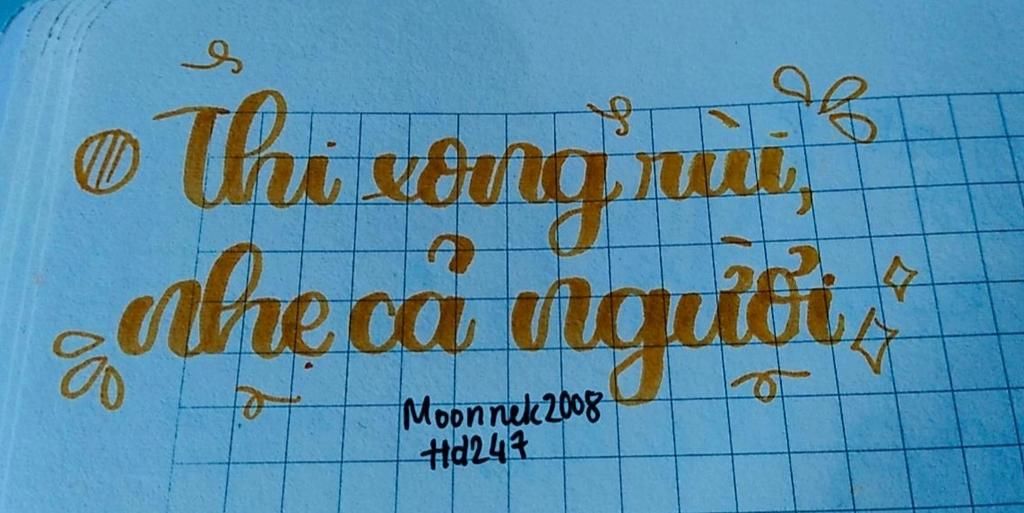 Thi xong rùi,
nhẹ cả người
Moonnek2008
Hd247